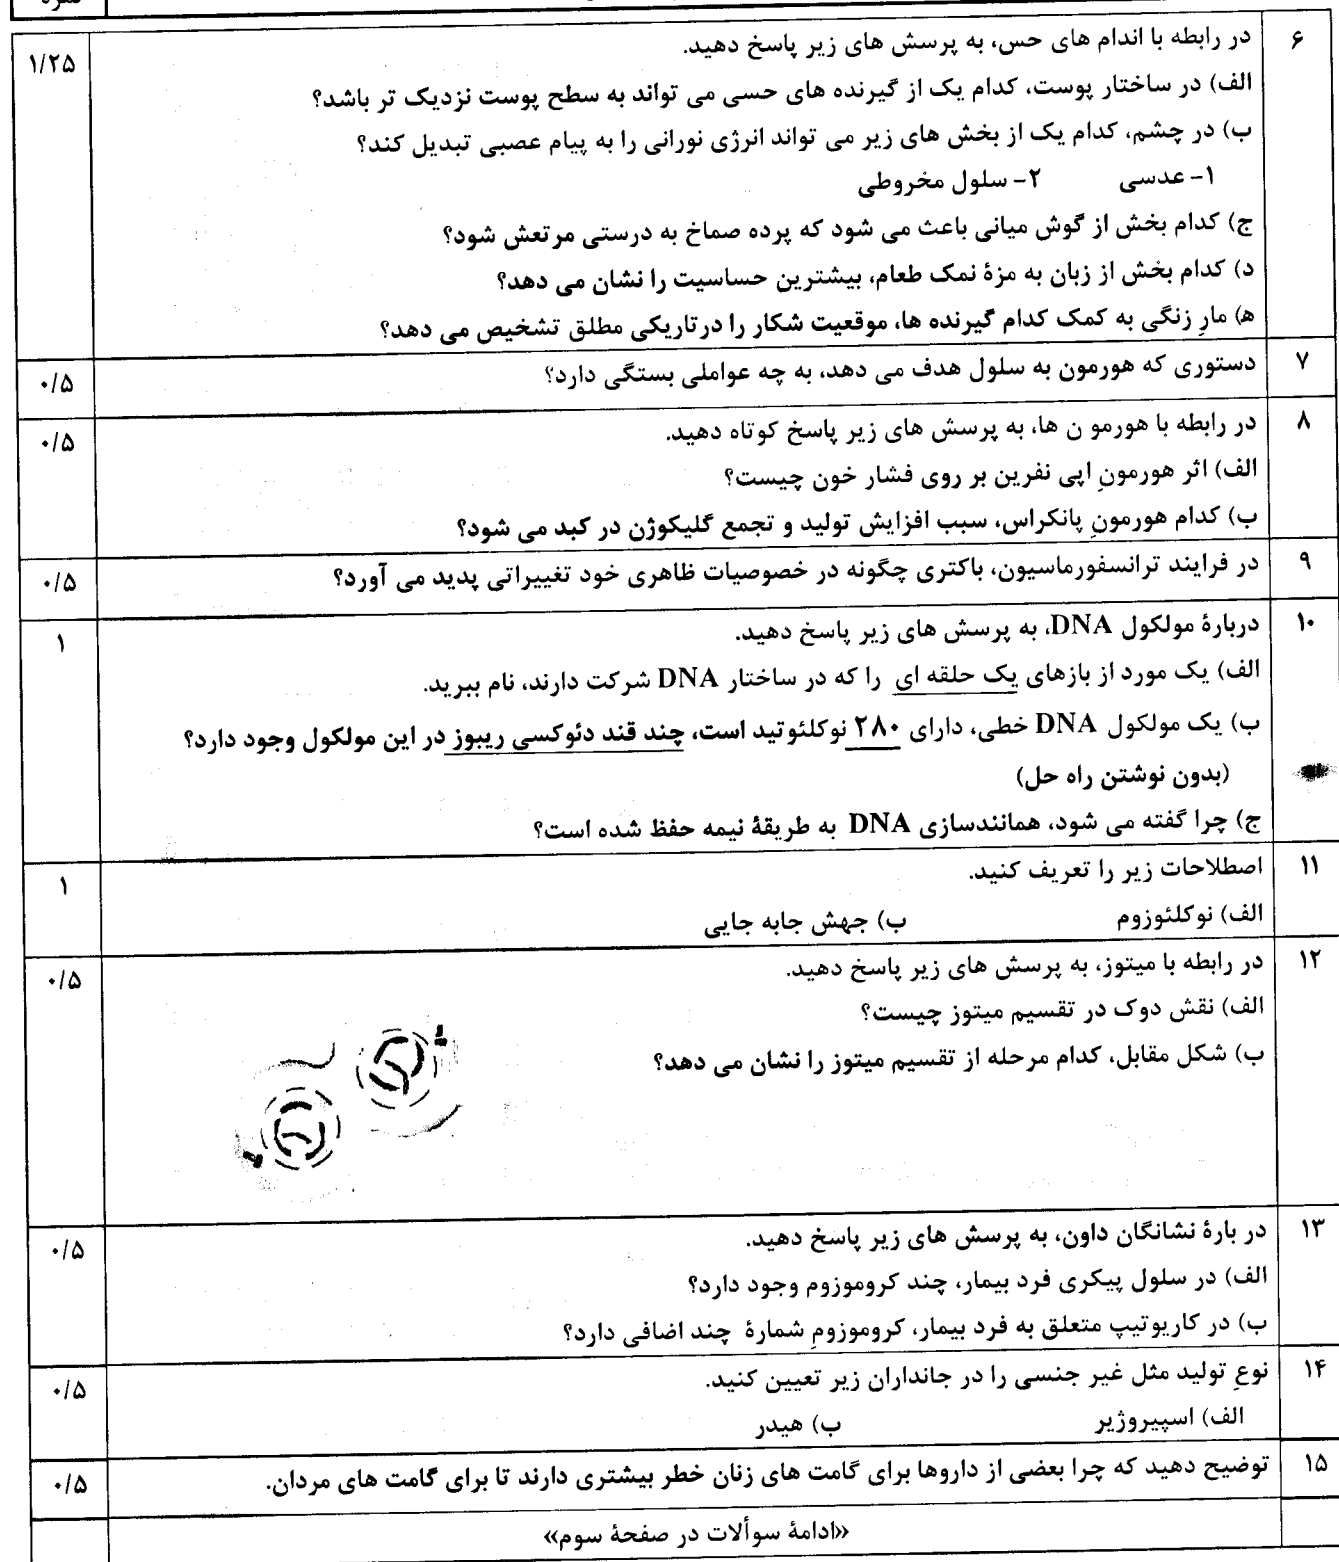 نمره
۶ در رابطه با اندام های حس، به پرسش های زیر پاسخ دهید. ۱/۲۵
الف) در ساختار پوست، کدام یک از گیرنده های حسی می تواند به سطح پوست نزدیک تر باشد؟
ب) در چشم، کدام یک از بخش های زیر می تواند انرژی نورانی را به پیام عصبی تبدیل کند؟
۱- عدسی ۲- سلول مخروطی
ج) کدام بخش از گوش میانی باعث می شود که پرده صماخ به درستی مرتعش شود؟
د) کدام بخش از زبان به مزهٔ نمک طعام، بیشترین حساسیت را نشان می دهد؟
ه) مارِ زنگی به کمک کدام گیرنده ها، موقعیت شکار را درتاریکی مطلق تشخیص می دهد؟
۷ دستوری که هورمون به سلول هدف می دهد، به چه عواملی بستگی دارد؟ ۰/۵
۸ در رابطه با هورمو ن ها، به پرسش های زیر پاسخ کوتاه دهید. ۰/۵
الف) اثر هورمونِ اپی نفرین بر روی فشار خون چیست؟
ب) کدام هورمونِ پانکراس، سبب افزایش تولید و تجمع گلیکوژن در کبد می شود؟
۹ در فرایند ترانسفورماسیون، باکتری چگونه در خصوصیات ظاهری خود تغییراتی پدید می آورد؟ ۰/۵
۱۰ دربارهٔ مولکول DNA، به پرسش های زیر پاسخ دهید. ۱
الف) یک مورد از بازهای یک حلقه ای را که در ساختار DNA شرکت دارند، نام ببرید.
ب) یک مولکول DNA خطی، دارای ۲۸۰ نوکلئوتید است، چند قند دئوکسی ریبوز در این مولکول وجود دارد؟
(بدون نوشتن راه حل)
ج) چرا گفته می شود، همانندسازی DNA به طریقهٔ نیمه حفظ شده است؟
۱۱ اصطلاحات زیر را تعریف کنید. ۱
الف) نوکلئوزوم ب) جهش جابه جایی
۱۲ در رابطه با میتوز، به پرسش های زیر پاسخ دهید. ۰/۵
الف) نقش دوک در تقسیم میتوز چیست؟
ب) شکل مقابل، کدام مرحله از تقسیم میتوز را نشان می دهد؟
۱۳ در بارهٔ نشانگان داون، به پرسش های زیر پاسخ دهید. ۰/۵
الف) در سلول پیکری فرد بیمار، چند کروموزوم وجود دارد؟
ب) در کاریوتیپ متعلق به فرد بیمار، کروموزومِ شمارهٔ چند اضافی دارد؟
۱۴ نوعِ تولید مثل غیر جنسی را در جانداران زیر تعیین کنید. ۰/۵
الف) اسپیروژیر ب) هیدر
۱۵ توضیح دهید که چرا بعضی از داروها برای گامت های زنان خطر بیشتری دارند تا برای گامت های مردان. ۰/۵
«ادامهٔ سوألات در صفحهٔ سوم»